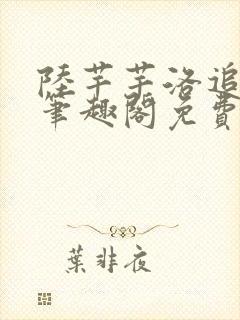 陸芊芊洛追
筆趣閣免費
葉非夜